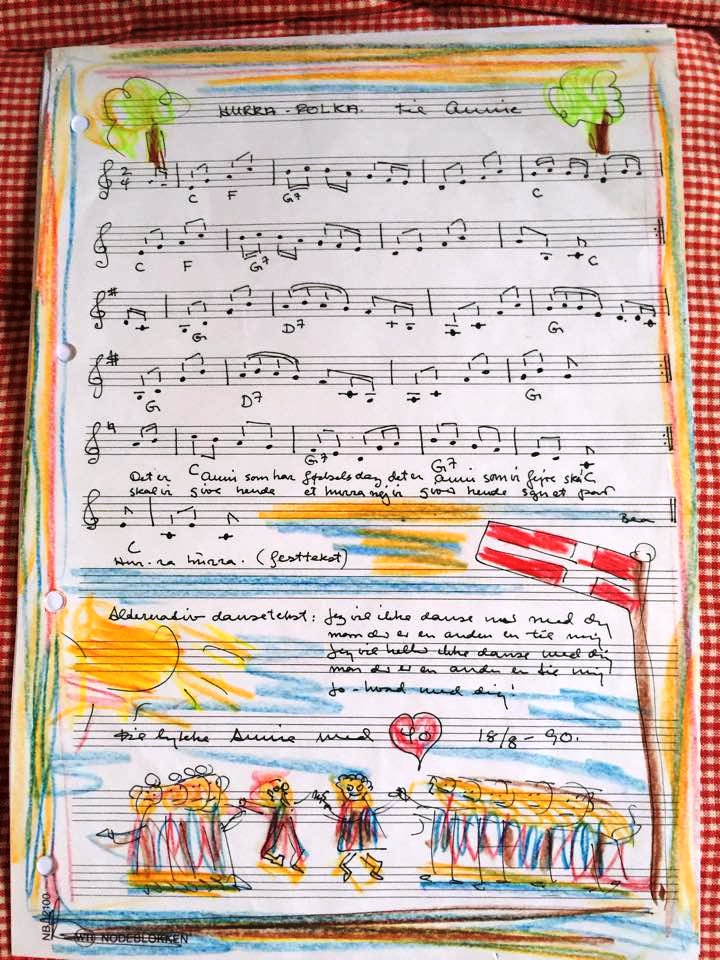 HURRA-POLKA. til Annie
2 4
C F G7 C
C F G7 C
G D7 G
G D7 G
C G7 G7 C
Det er Anni som har fødselsdag, det er Anni som vi fejre skal
skal vi give hende et hurra nej vi giver hende sgu et par
Ben
C
Hur-ra hurra. (festtekst)
Alternativ dansetekst: Jeg vil ikke danse mer med dig
mon der er en anden en til mig
Jeg vil heller ikke danse med dig
mon der er en anden en til mig
Jo - hvad med dig!
Til lykke Annie med 40 18/8-90.
NBA2100
WH NODEBLOKKEN